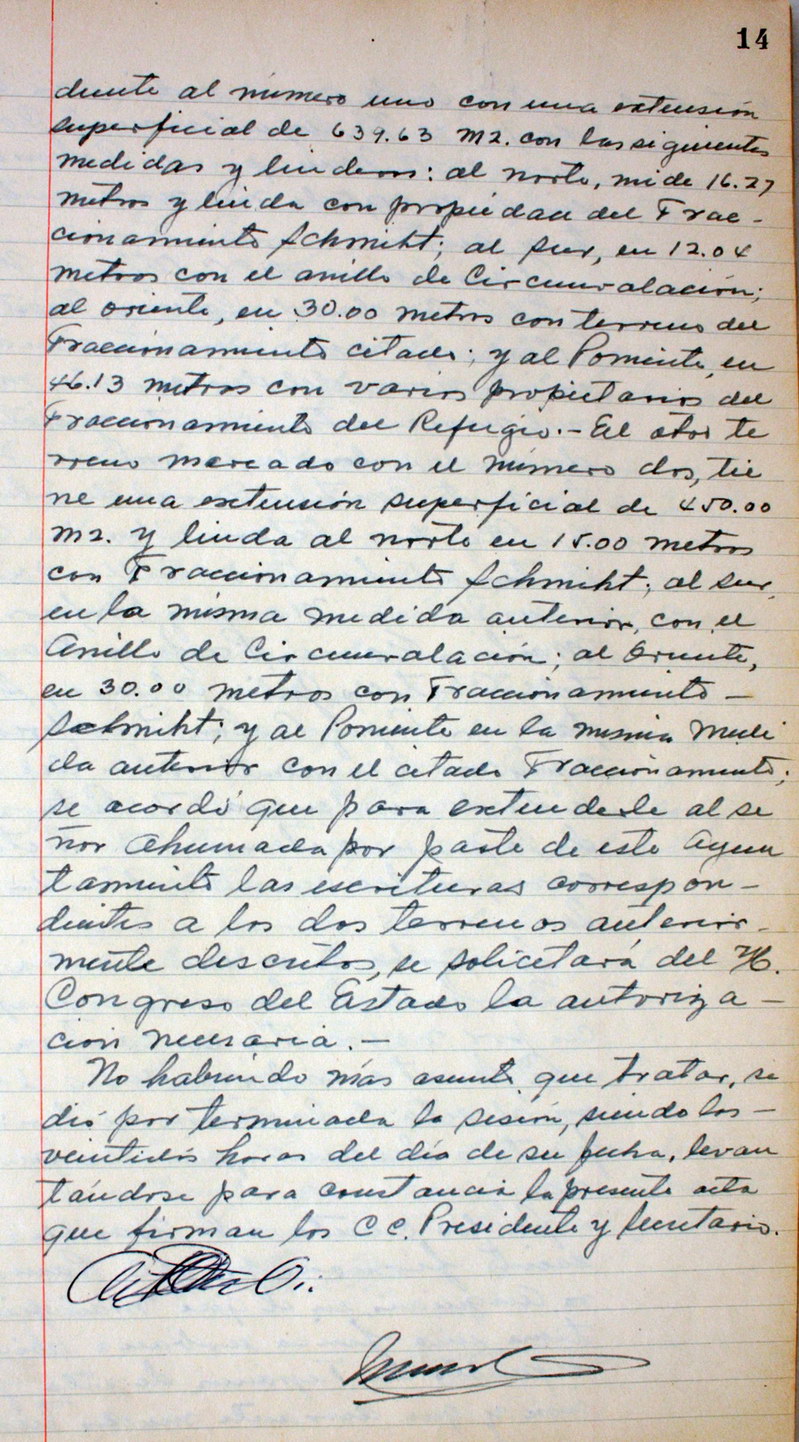 14
diente al número uno con una extensión
superficial de 639.63 M2. con las siguientes
medidas y linderos: al norte, mide 16.27
metros y linda con propiedad del Frac-
cionamiento Schmiht; al sur, en 12.04
metros con el anillo de Circunvalación;
al oriente, en 30.00 metros con terreno del
Fraccionamiento citado; y al Poniente, en
46.13 metros con varios propietarios del
Fraccionamiento del Refugio.- El otro te
rreno marcado con el número dos, tie
ne una extensión superficial de 450.00
M2. y linda al norte en 15.00 metros
con Fraccionamiento Schmiht; al sur,
en la misma medida anterior, con el
Anillo de Circunvalación; al Oriente,
en 30.00 metros con Fraccionamiento -
Schmiht; y al Poniente en la misma medi
da anterior con el citado Fraccionamiento;
se acordó que para extenderle al se
ñor Ahumada por parte de este Ayun
tamiento las escrituras correspon-
dientes a los dos terrenos anterior-
mente descritos, se solicitará del H.
Congreso del Estado la autoriza-
ción necesaria.-
No habiendo más asunto que tratar, se
dió por terminada la sesión, siendo las-
veintidós horas del día de su fecha, levan
tándose para constancia la presente acta
que firman los C C. Presidente y Secretario.